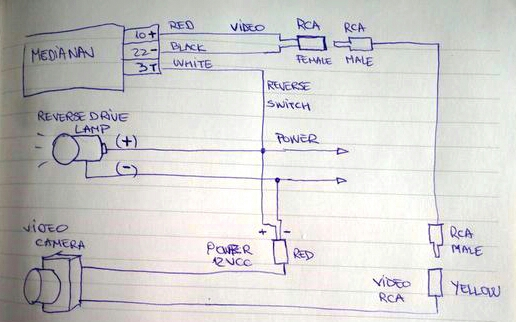 10+ RED VIDEO RCA RCA
MEDIANAV 22- BLACK FEMALE MALE
3T WHITE
REVERSE
SWITCH
REVERSE DRIVE
LAMP
(+) POWER
(-)
VIDEO
CAMERA
+ -
POWER
12VCC
RED
RCA
MALE
VIDEO
RCA
YELLOW